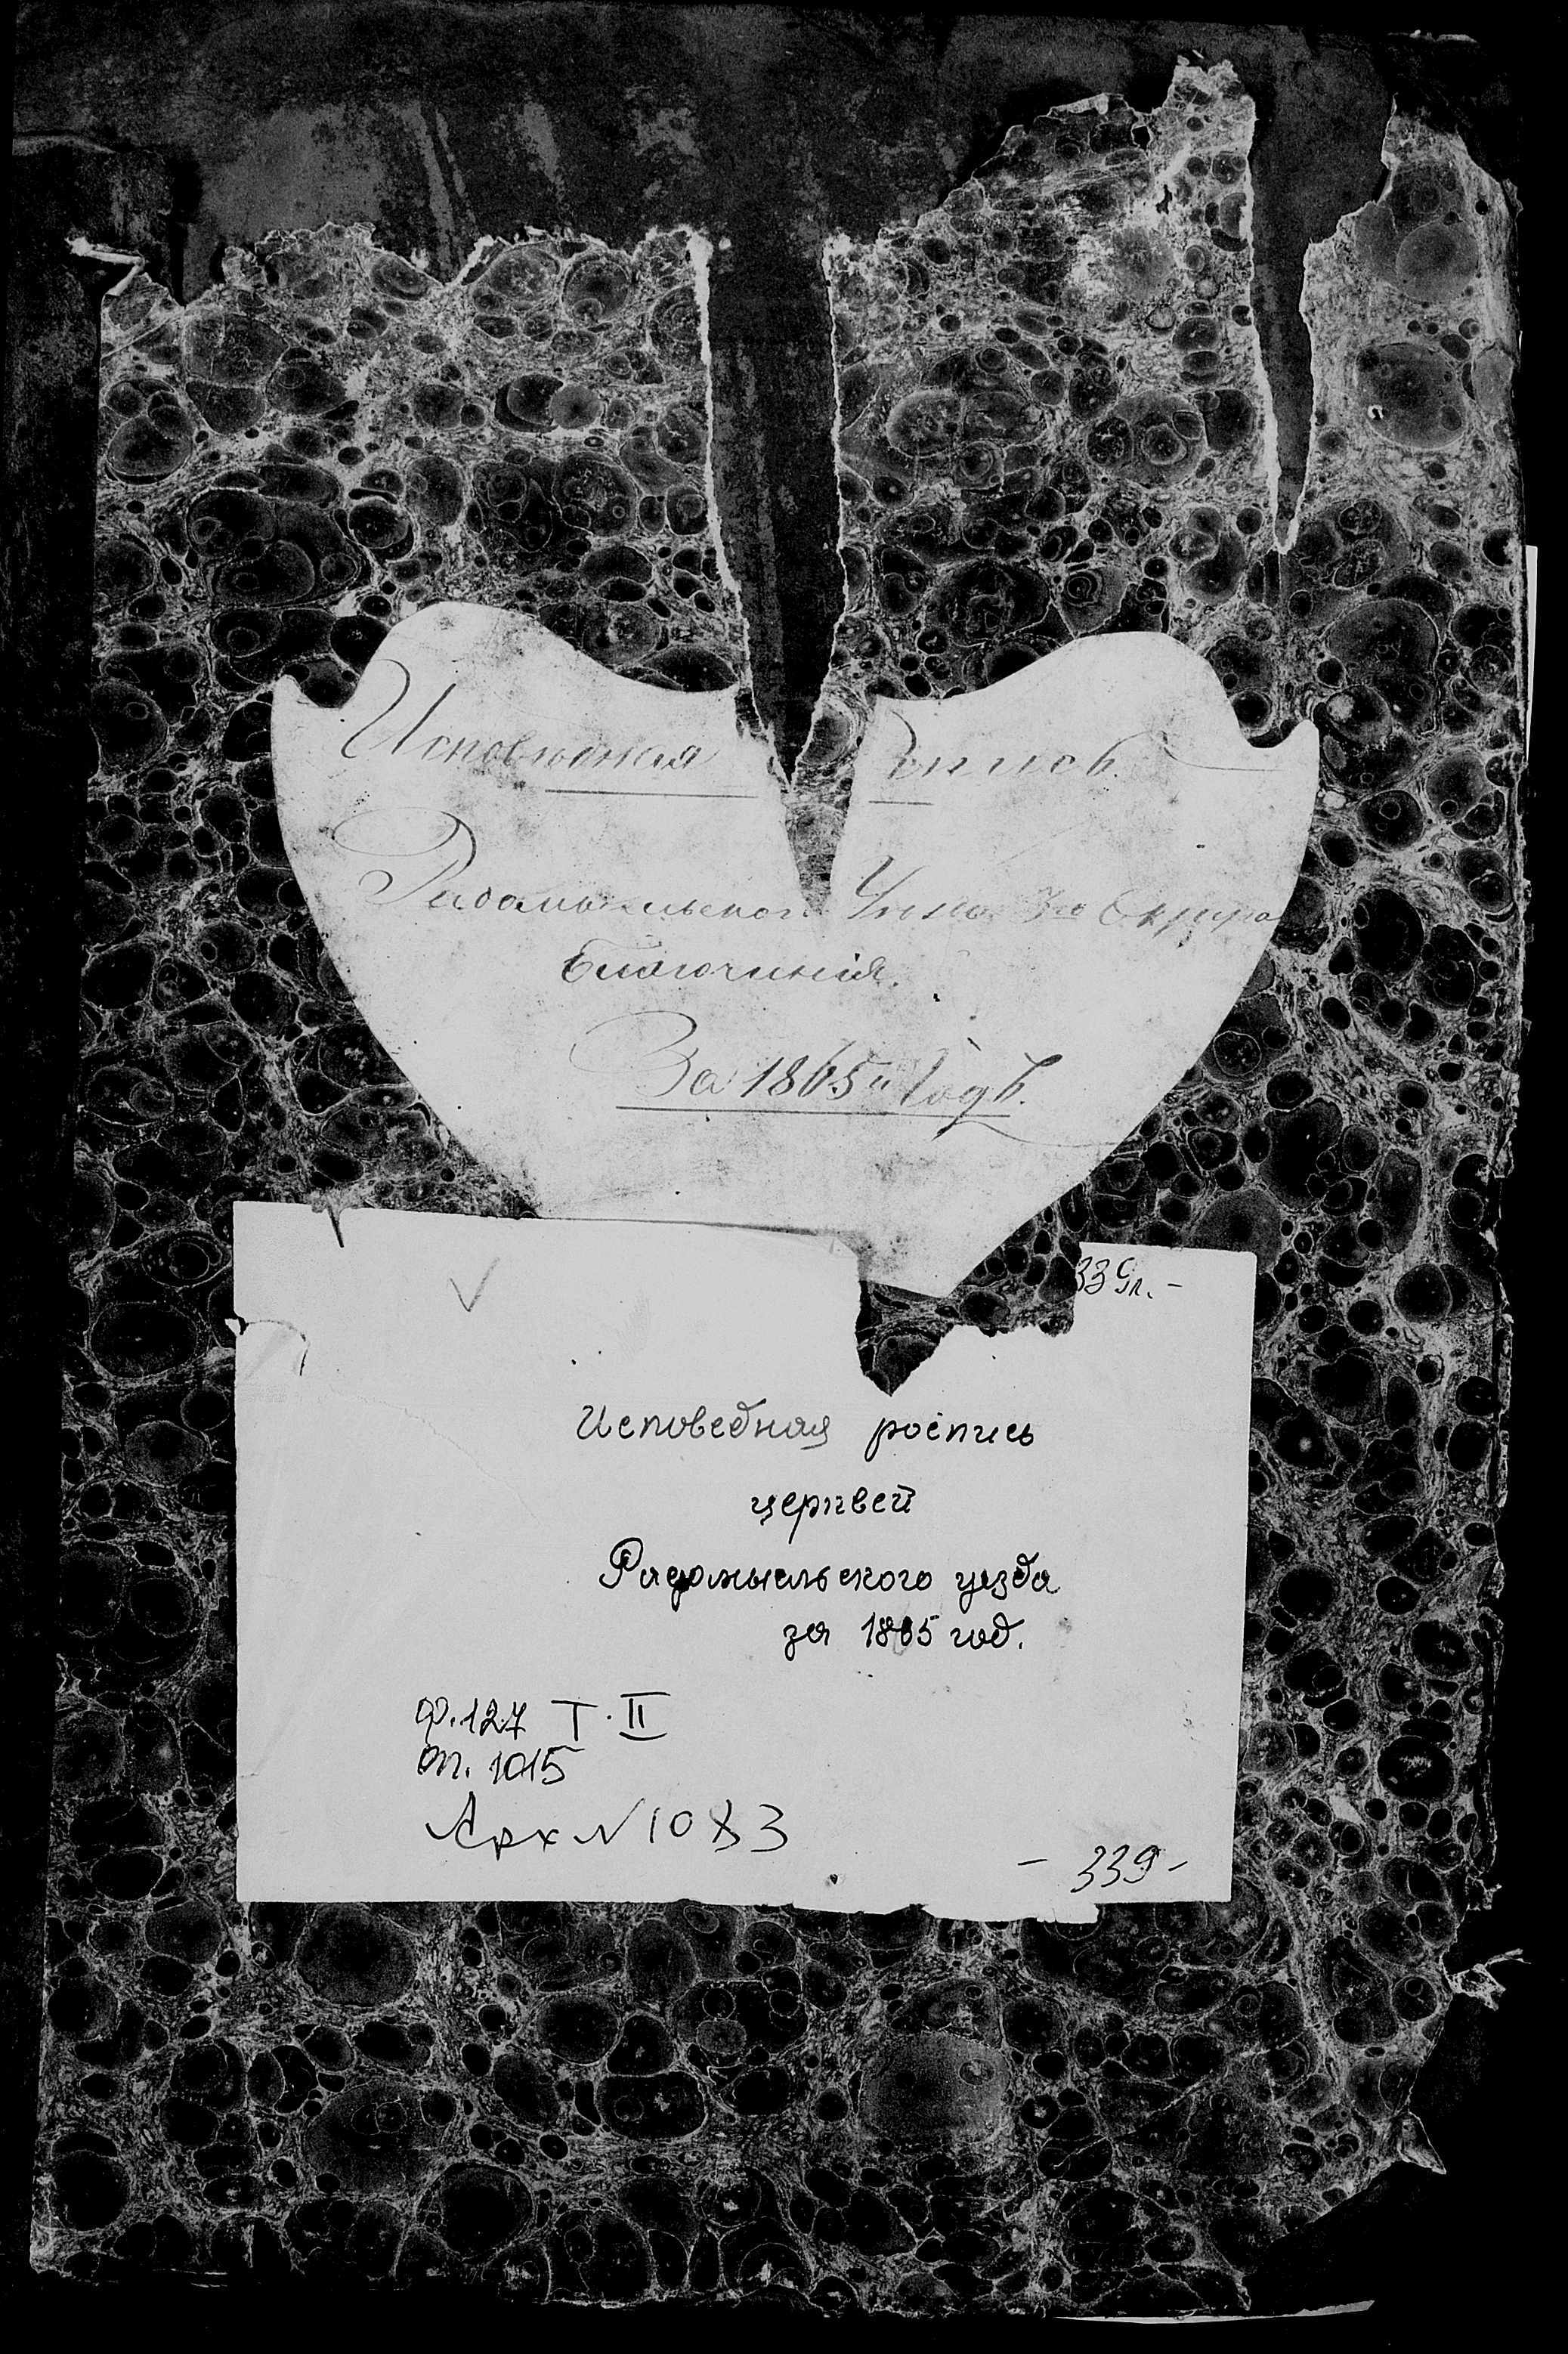 Исповѣдная Роспись
Радомысльскаго Уѣзда 3го Округа
Благочинія.
За 1865й Годъ.
339л. –
Исповедная роспись
церквей
Радомысльского уезда
за 1865 год.
Ф. 127 Т. II
оп. 1015
Арх № 10
– 339 –